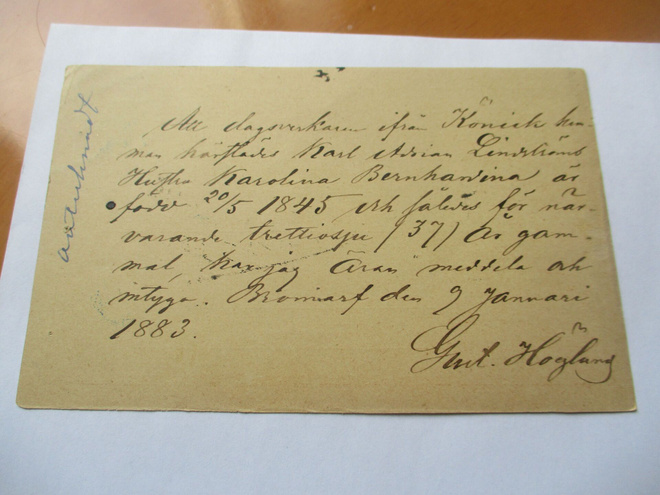 Att dagsverkaren ifrån Könick hem-
man härstädes Karl Adrian Lindströms
Hustru Karolina Bernhardina är
född 20/5 1845 och således för när-
varande trettiosju (37) år gam-
mal, har jag äran meddela och
intyga. Bromarf den 9 Januari
1883.
Gust. Höglund